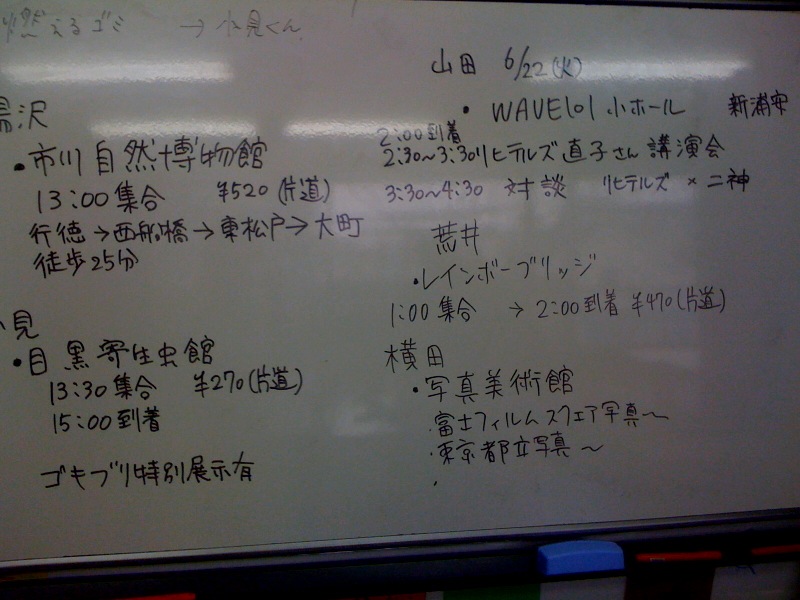 燃えるゴミ → 小見くん
湯沢
・市川自然博物館
13:00集合 ¥520(片道)
行徳→西船橋→東松戸→大町
徒歩25分
小見
・目黒寄生虫館
13:30集合 ¥270(片道)
15:00到着
ゴキブリ特別展示有
山田 6/22(火)
・WAVE101小ホール 新浦安
2:00到着
2:30〜3:30リヒテルズ直子さん講演会
3:30〜4:30 対談 リヒテルズ×二神
荒井
・レインボーブリッジ
1:00集合 → 2:00到着 ¥470(片道)
横田
・写真美術館
・富士フィルムスクエア写真〜
・東京都立写真〜
・